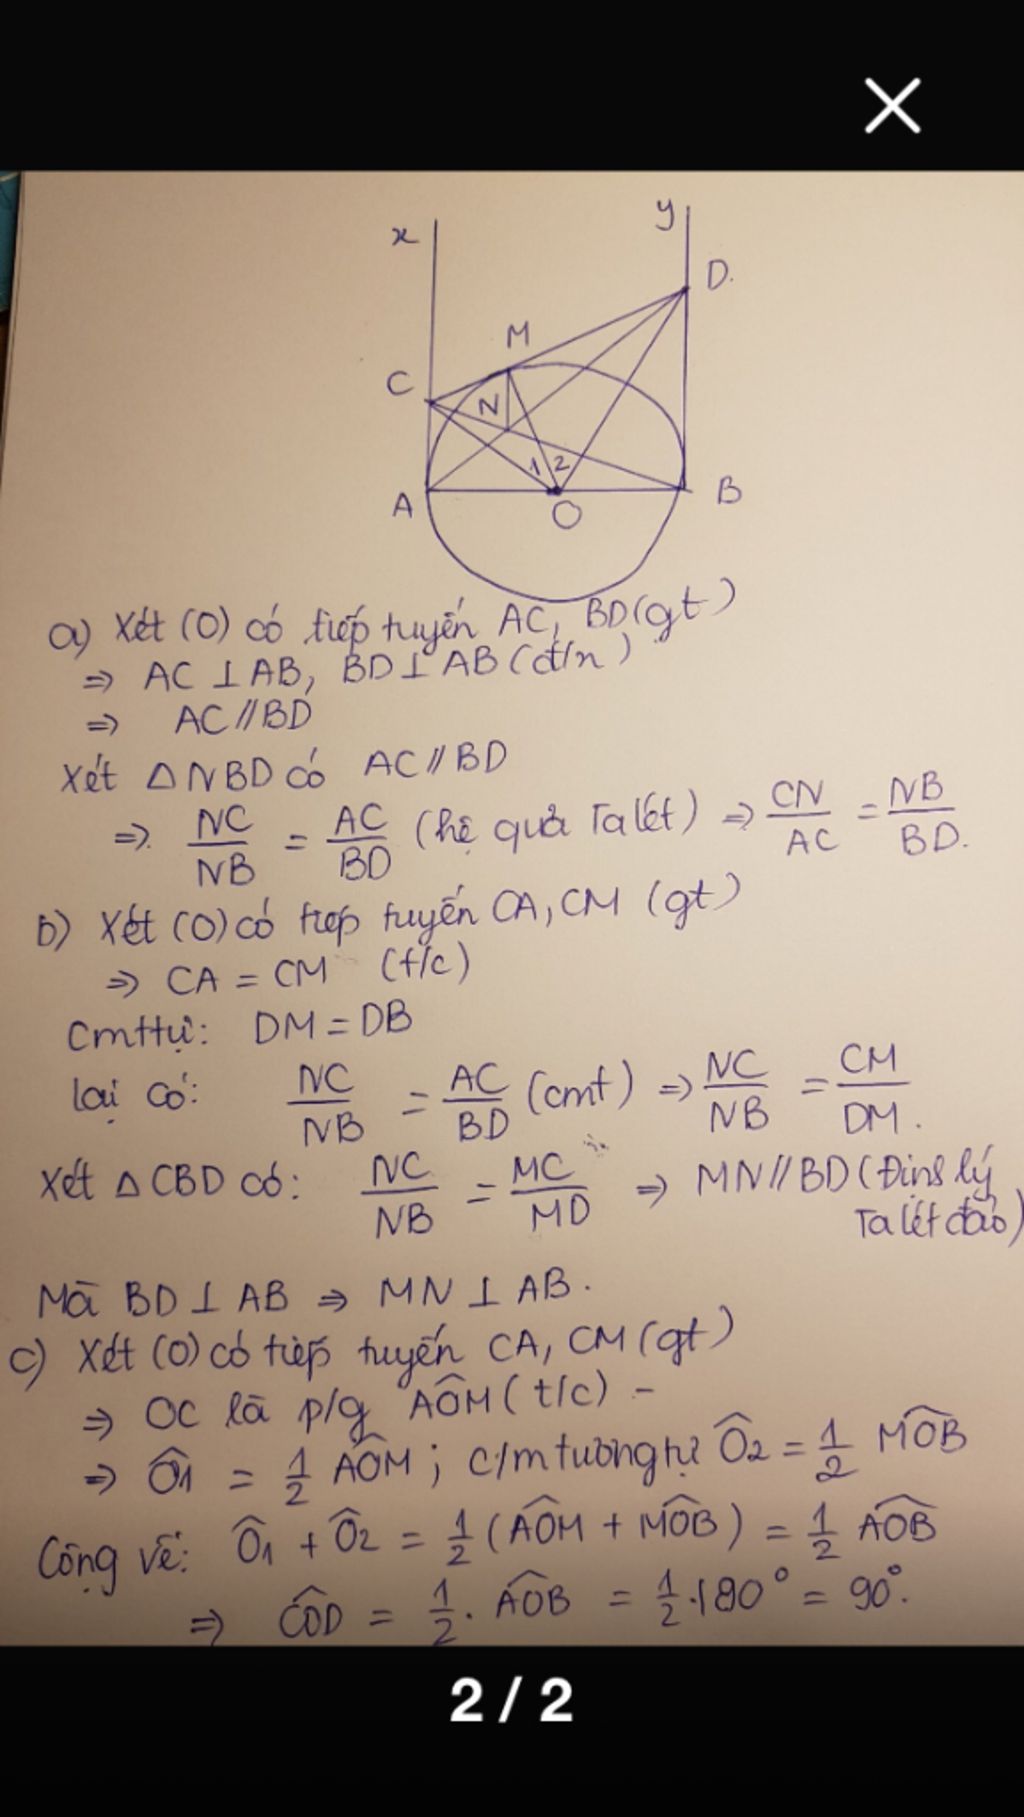 x
y
D.
M
C
N
1 2
A
O
B
a) Xét (O) có tiếp tuyến AC, BD (gt)
⇒ AC ⊥ AB, BD ⊥ AB (đ/n)
⇒ AC // BD
Xét △NBD có AC // BD
⇒ NC/NB = AC/BD (hệ quả Ta lét) ⇒ CN/AC = NB/BD.
b) Xét (O) có tiếp tuyến CA, CM (gt)
⇒ CA = CM (t/c)
Cmttự: DM = DB
lại có: NC/NB = AC/BD (cmt) ⇒ NC/NB = CM/DM.
Xét △CBD có: NC/NB = MC/MD ⇒ MN // BD (Định lý
Ta lét đảo)
Mà BD ⊥ AB ⇒ MN ⊥ AB.
c) Xét (O) có tiếp tuyến CA, CM (gt)
⇒ OC là p/g AÔM (t/c) -
⇒ Ô1 = 1/2 AÔM ; c/m tương tự Ô2 = 1/2 MÔB
Cộng vế: Ô1 + Ô2 = 1/2 (AÔM + MÔB) = 1/2 AÔB
⇒ CÔD = 1/2 . AÔB = 1/2 . 180° = 90°.
2 / 2